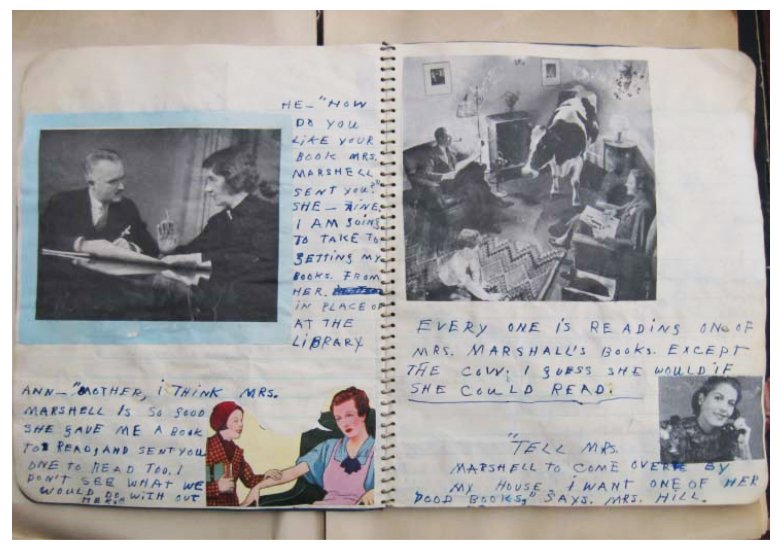 HE- "HOW
DO YOU
LIKE YOUR
BOOK MRS.
MARSHELL
SENT YOU?"
SHE - FINE
I AM GOING
TO TAKE TO
GETTING MY
BOOKS. FROM
HER.
IN PLACE OF
AT THE
LIBRARY
ANN-"MOTHER, I THINK MRS.
MARSHELL IS SO GOOD
SHE GAVE ME A BOOK
TO READ, AND SENT YOU
ONE TO READ TOO. I
DON'T SEE WHAT WE
WOULD DO WITH OUT
HER."
EVERY ONE IS READING ONE OF
MRS. MARSHALL'S BOOKS. EXCEPT
THE COW. I GUESS SHE WOULD IF
SHE COULD READ.
"TELL MRS.
MARSHELL TO COME OVER BY
MY HOUSE. I WANT ONE OF HER
BOOKS," SAYS. MRS. HILL.